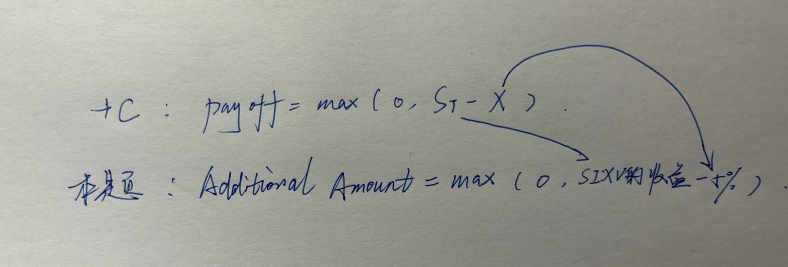 +C : payoff = max ( 0, S_T - X ) .
本题 : Additional Amount = max ( 0, SIXV的收益 - 5% ) .